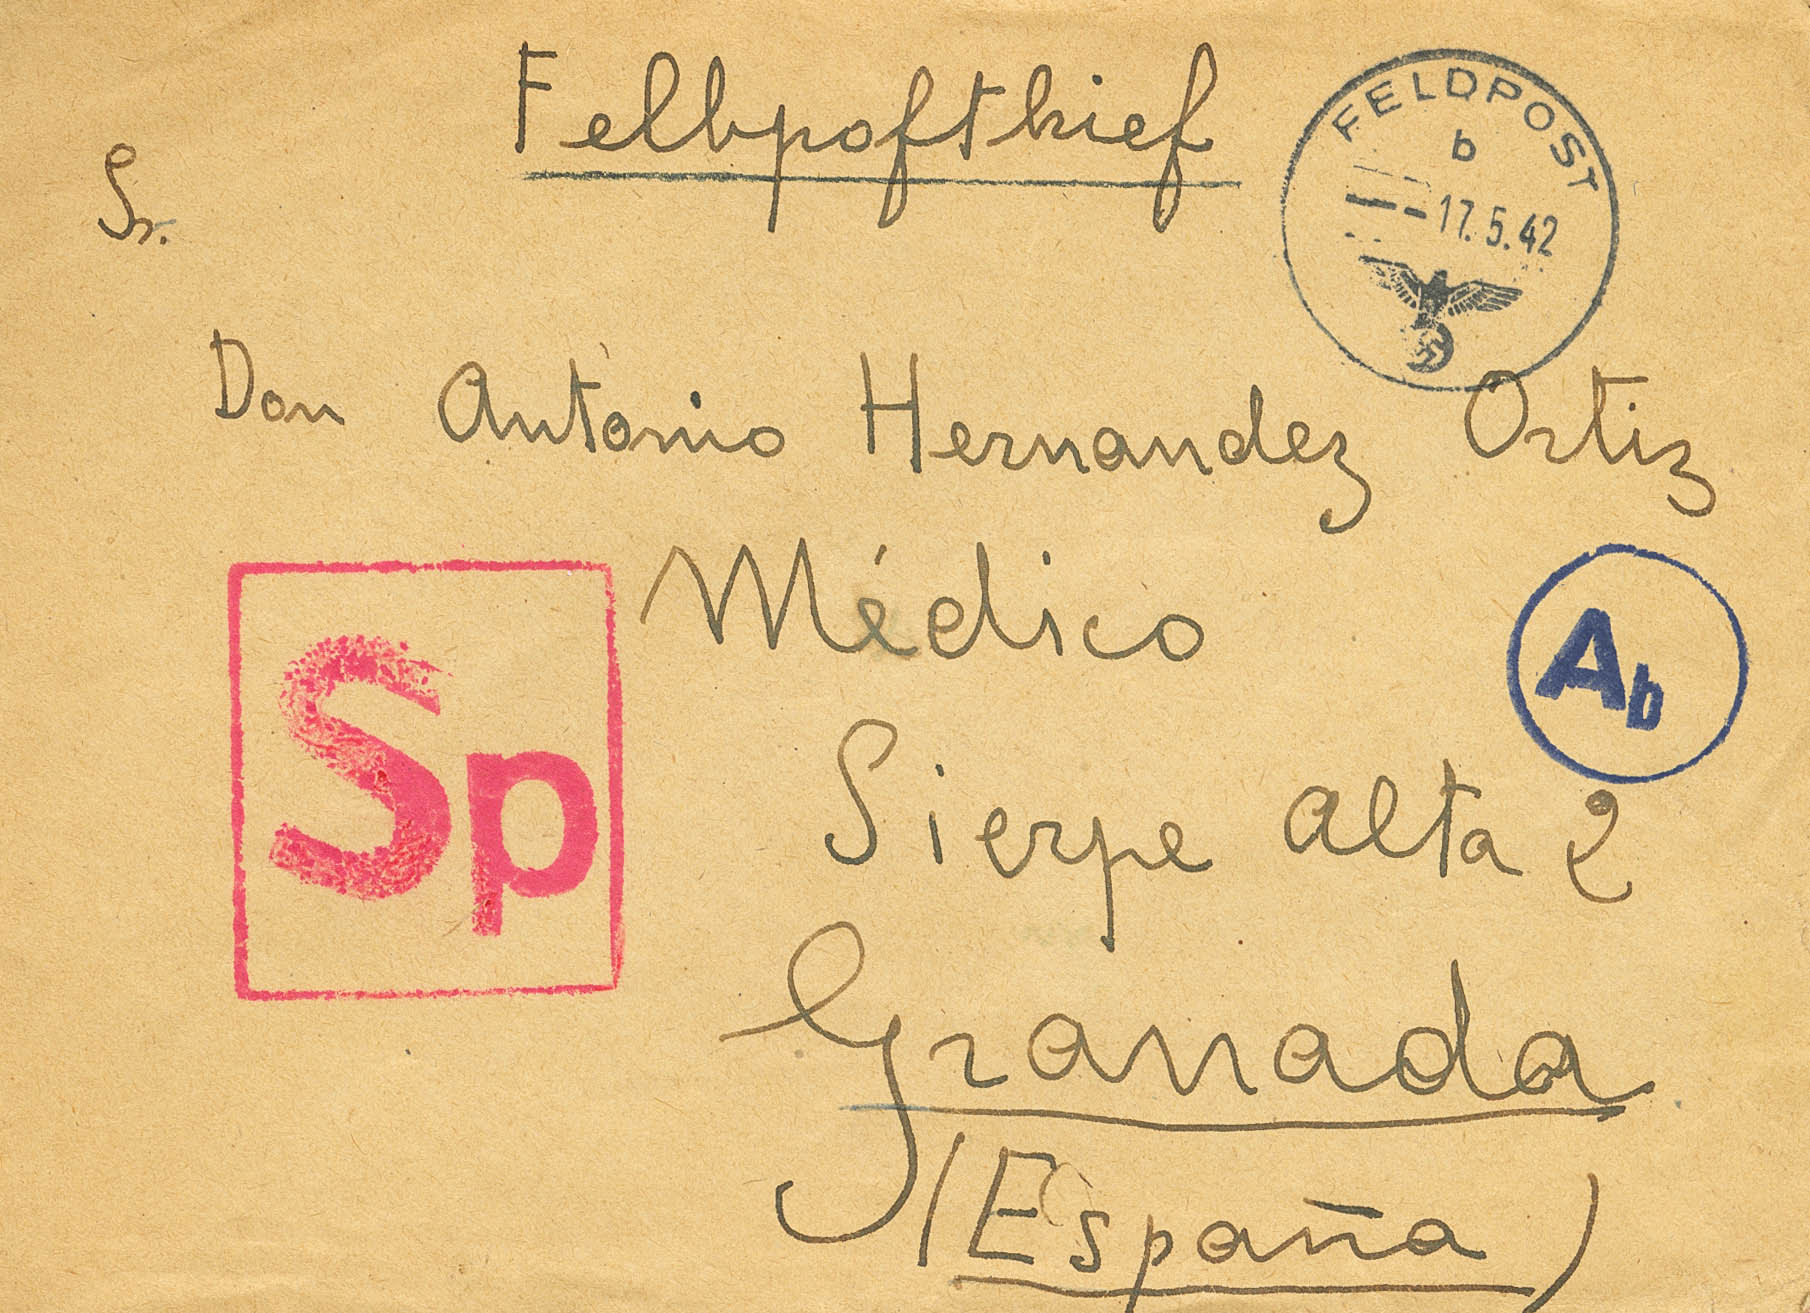 Felbpoftkief
FELDPOST
b
17.5.42
Sr.
Don Antonio Hernandez Ortiz
Médico
Sp
Ab
Sierpe alta 2
Granada
(España)